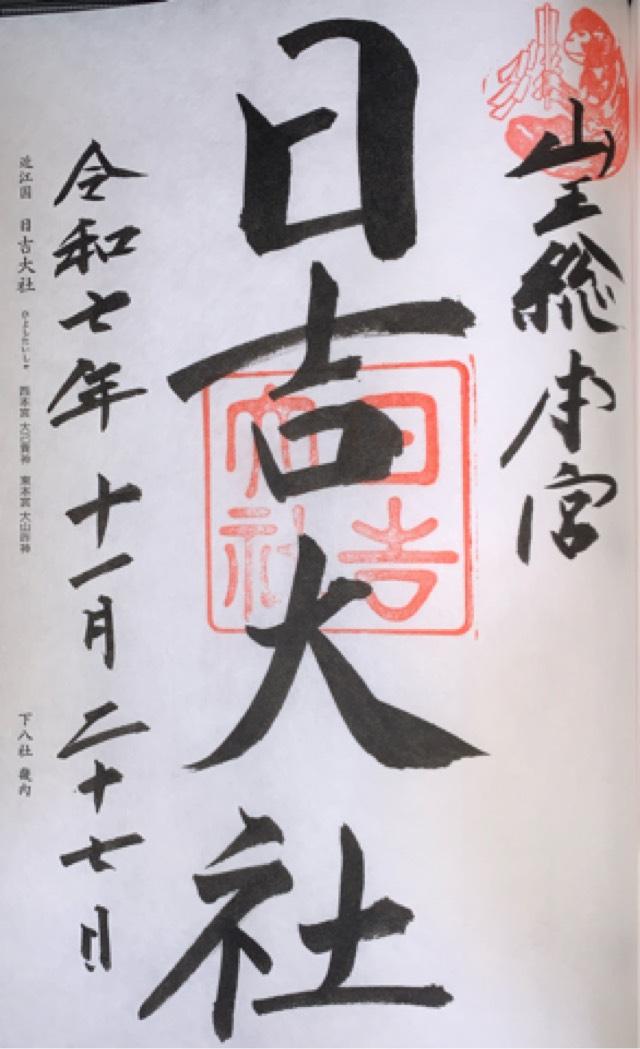 山王総本宮
日吉大社
日吉大社
令和七年十一月二十七日
近江国 日吉大社 ひよしたいしゃ 西本宮 大己貴神 東本宮 大山咋神 下八社 畿内